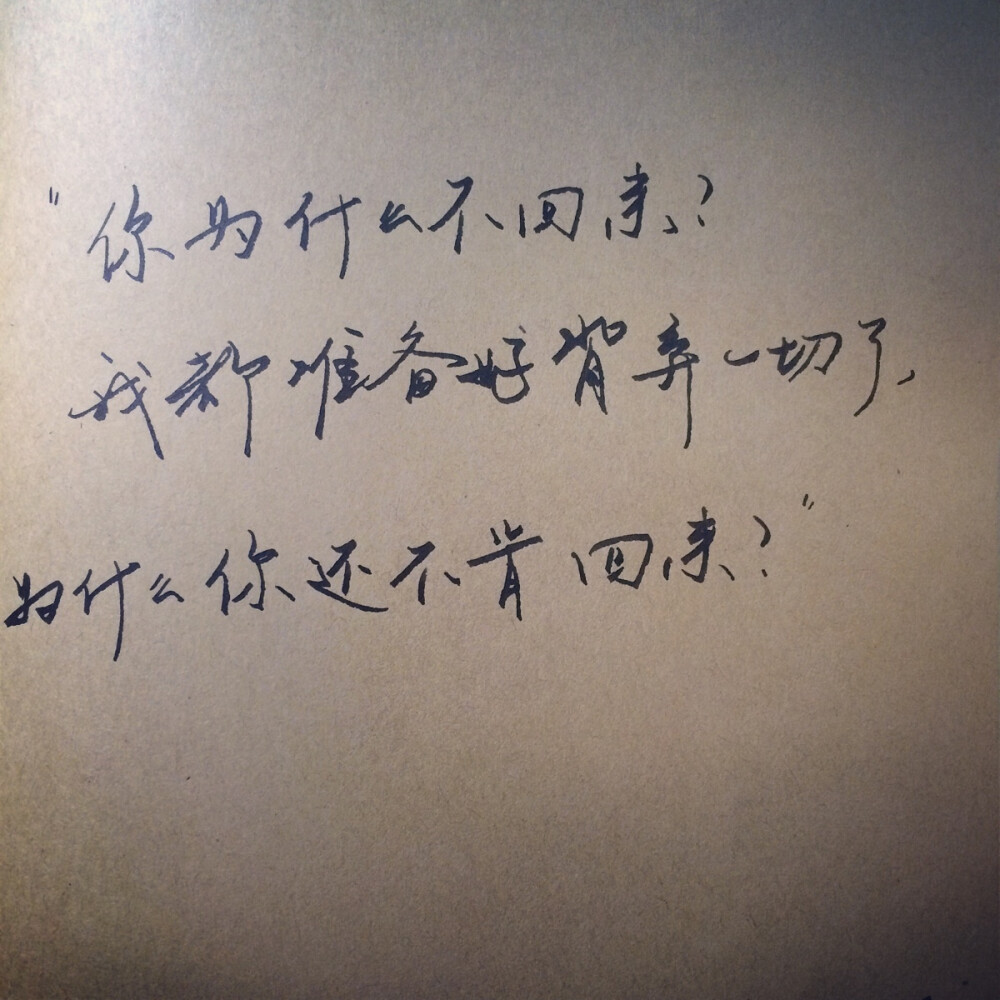 "你为什么不回来？
我都准备好背弃一切了，
为什么你还不肯回来？"